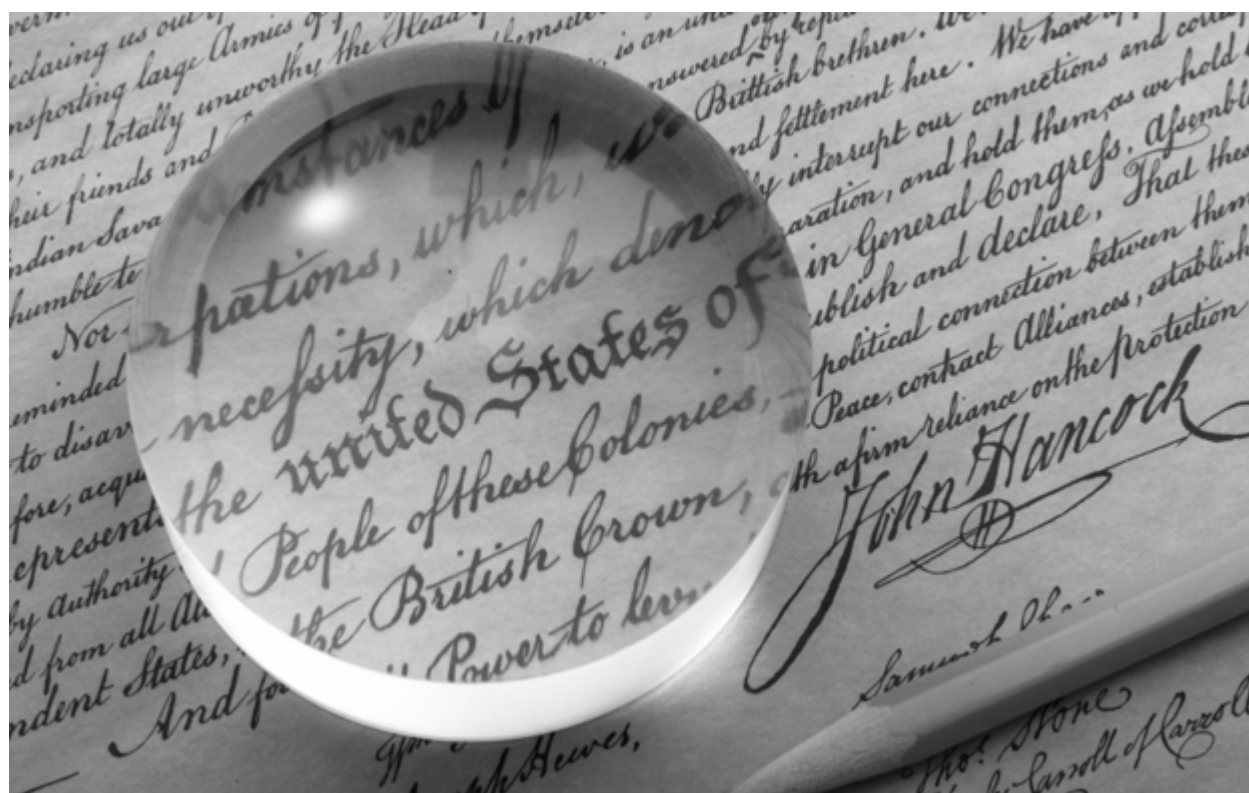 eclaring us out
nsporting large Armies of
, and totally unworthy the Head
heir friends and
ndian Sava
humble te
Nor
eminded
to disav
fore, acqu
epresent
by authority
d from all
ndent States,
And for
themse
is an un
mstances of
rpations, which, w
necefsity, which deno
the united States of
People of these Colonies,
the British Crown,
Power to levy
nswered by repea
Brittish brethren. W
nd settlement here. We have
y interrupt our connections and corre
aration, and hold them, as we hold
in General Congrefs, Afsemble
ublish and declare, That thes
political connection between them
Peace, contract Alliances, establish
th a firm reliance on the protection
John Hancock
Samuel
Thos. Stone
Carroll of Carroll
Hewes,